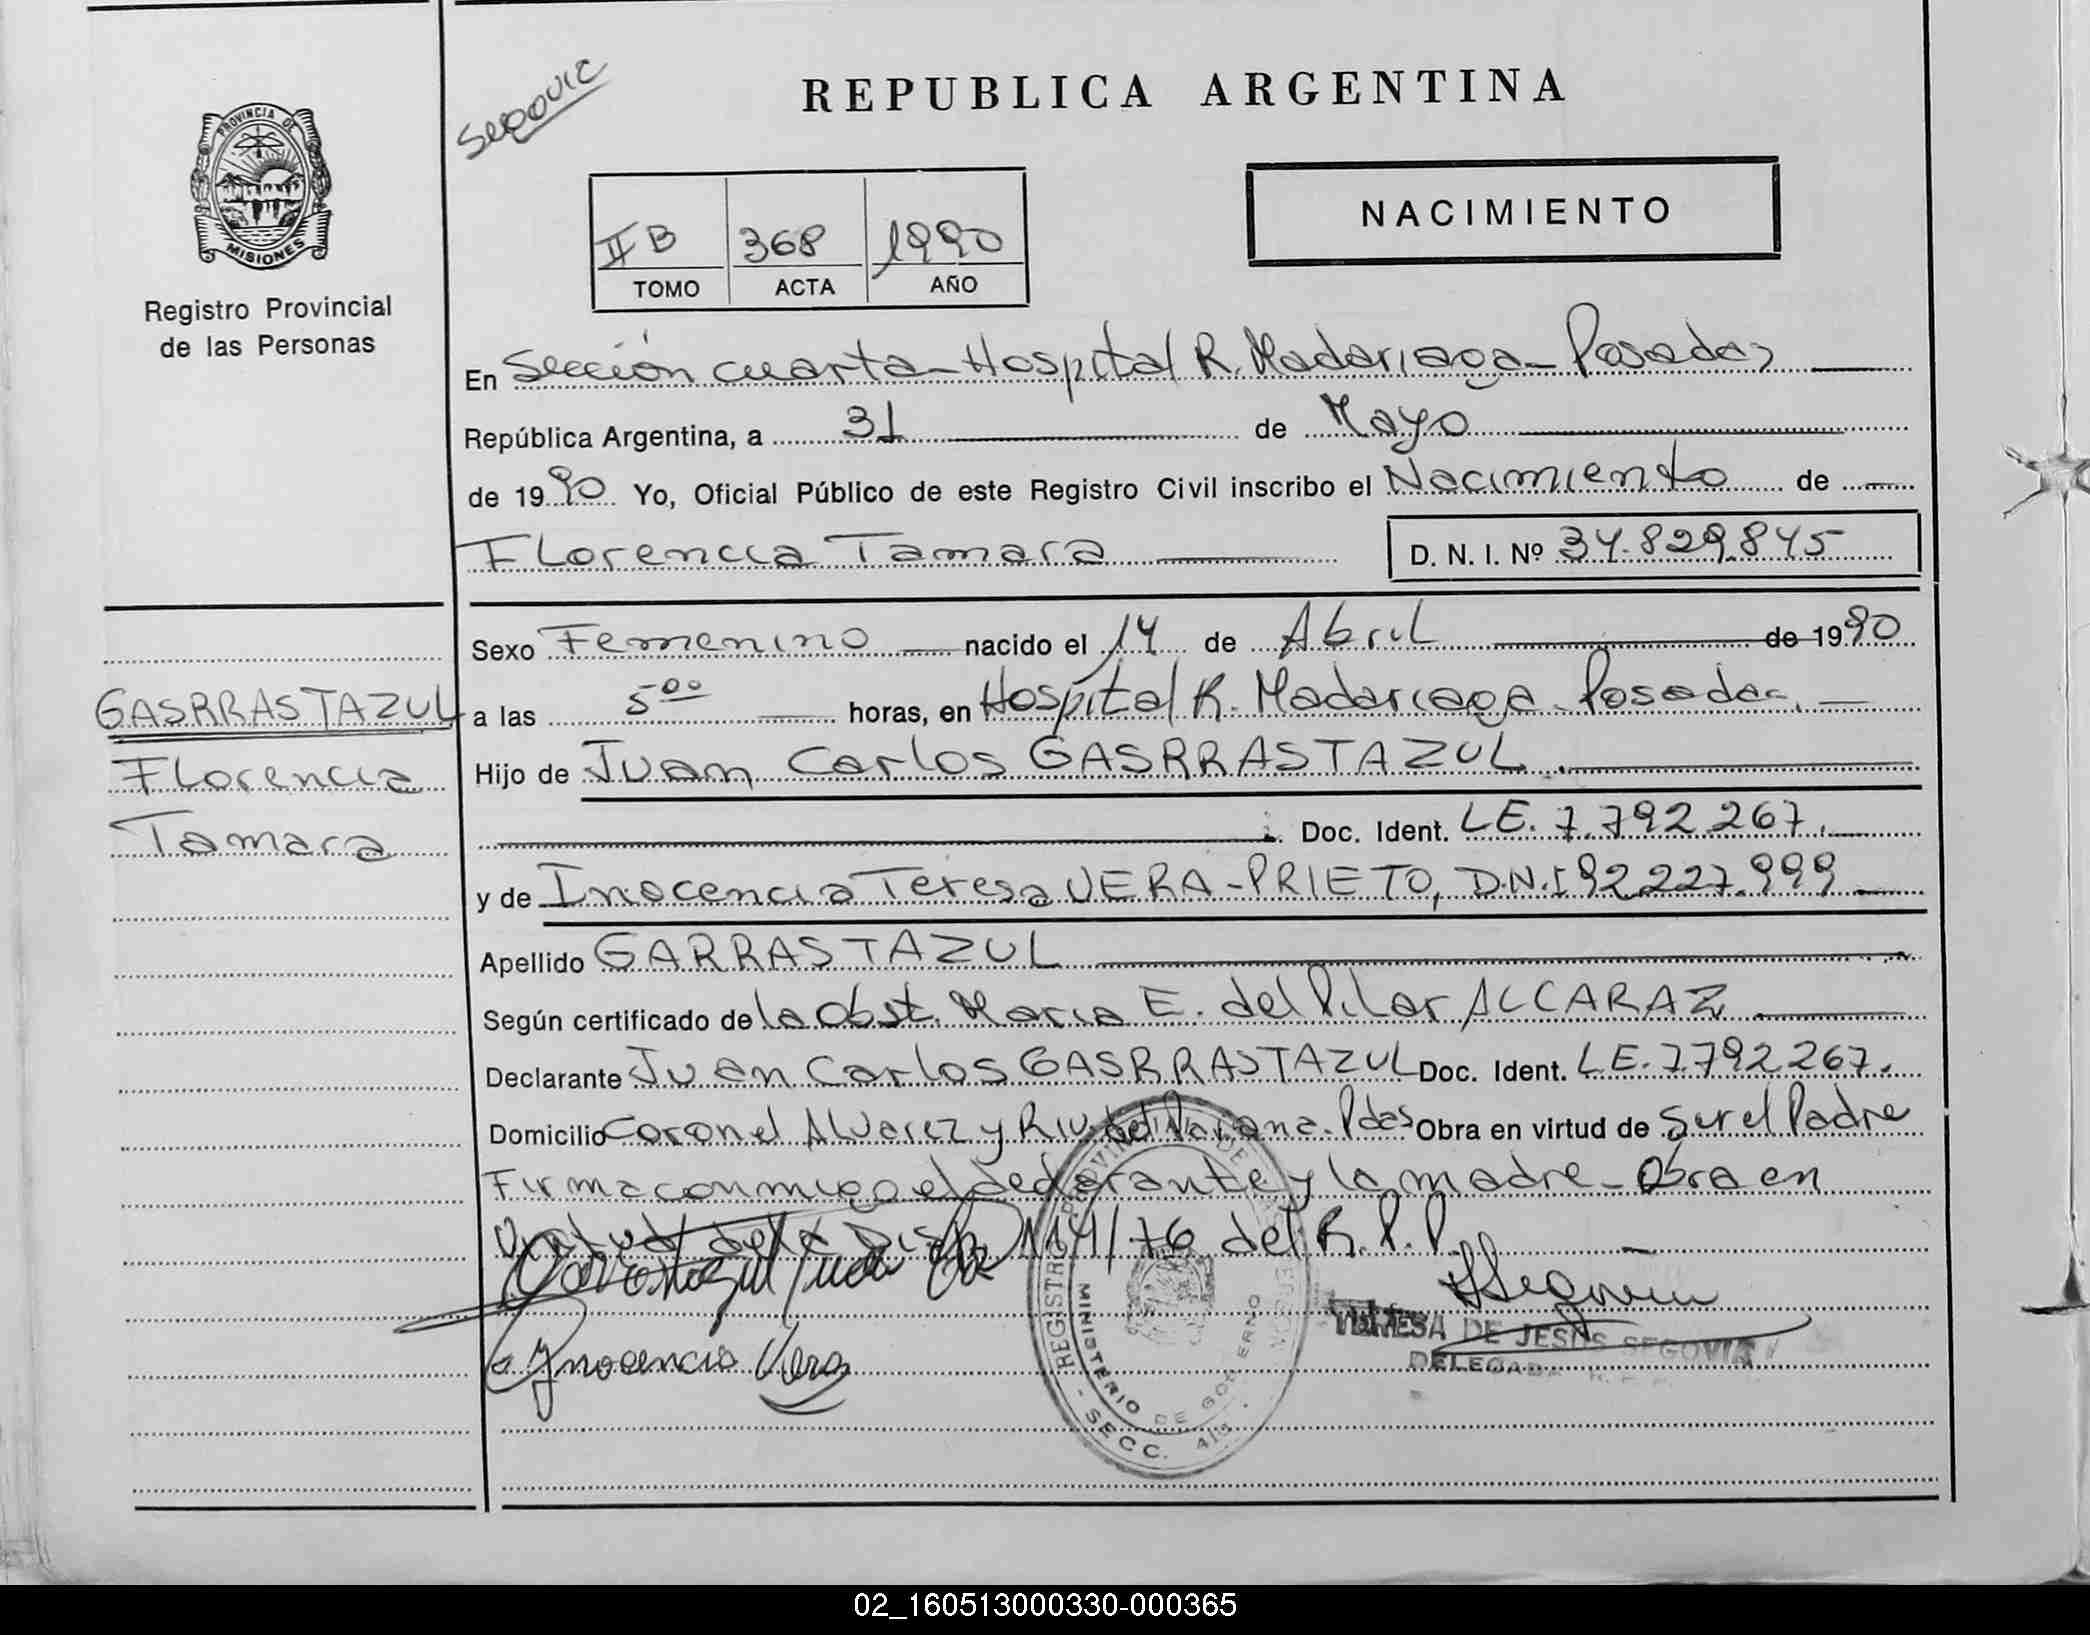 Segovia
REPUBLICA ARGENTINA
PROVINCIA DE
MISIONES
Registro Provincial
de las Personas
NACIMIENTO
II B 368 1990
TOMO ACTA AÑO
En Sección cuarta - Hospital R. Madariaga - Posadas
República Argentina, a 31 de Mayo
de 1990 Yo, Oficial Público de este Registro Civil inscribo el Nacimiento de
Florencia Tamara D. N. I. Nº 34.829.845
Sexo Femenino nacido el 14 de Abril de 1990
GASRRASTAZUL
a las 5 00 horas, en Hospital R. Madariaga - Posadas.
Florencia
Hijo de Juan Carlos GASRRASTAZUL.
Tamara
Doc. Ident. LE. 7.792.267.
y de Inocencia Teresa VERA - PRIETO, D.N.I 92.227.999
Apellido GARRASTAZUL
Según certificado de la Obst. Maria E. del Pilar ALCARAZ
Declarante Juan Carlos GASRRASTAZUL Doc. Ident. LE. 7792267.
Domicilio Coronel Alvarez y Riv. del Parana - Pdas Obra en virtud de Ser el Padre
Firma conmigo el declarante y la madre - Obra en
Virtud de la Disp. 114/76 del R. P. P.
Inocencia Vera
REGISTRO PROVINCIAL DE
MINISTERIO DE GOBIERNO
SECC. 4ta
TERESA DE JESUS SEGOVIA
DELEGADA
02_160513000330-000365